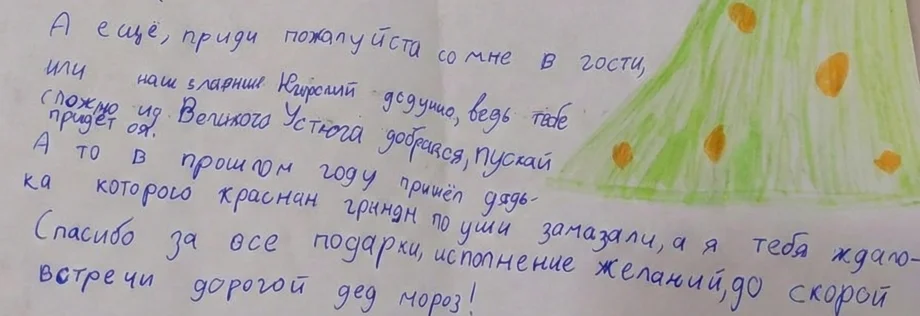 А ещё, приди пожалуйста со мне в гости,
или наш главный Кирский дедушка, ведь тебе
сложно из Великого Устюга добрався, пускай
придёт он.
А то в прошлом году пришёл дядь-
ка которого краснан гриндн по уши замазали, а я тебя ждало-
Спасибо за все подарки, исполнение желаний, до скорой
встречи дорогой дед мороз!